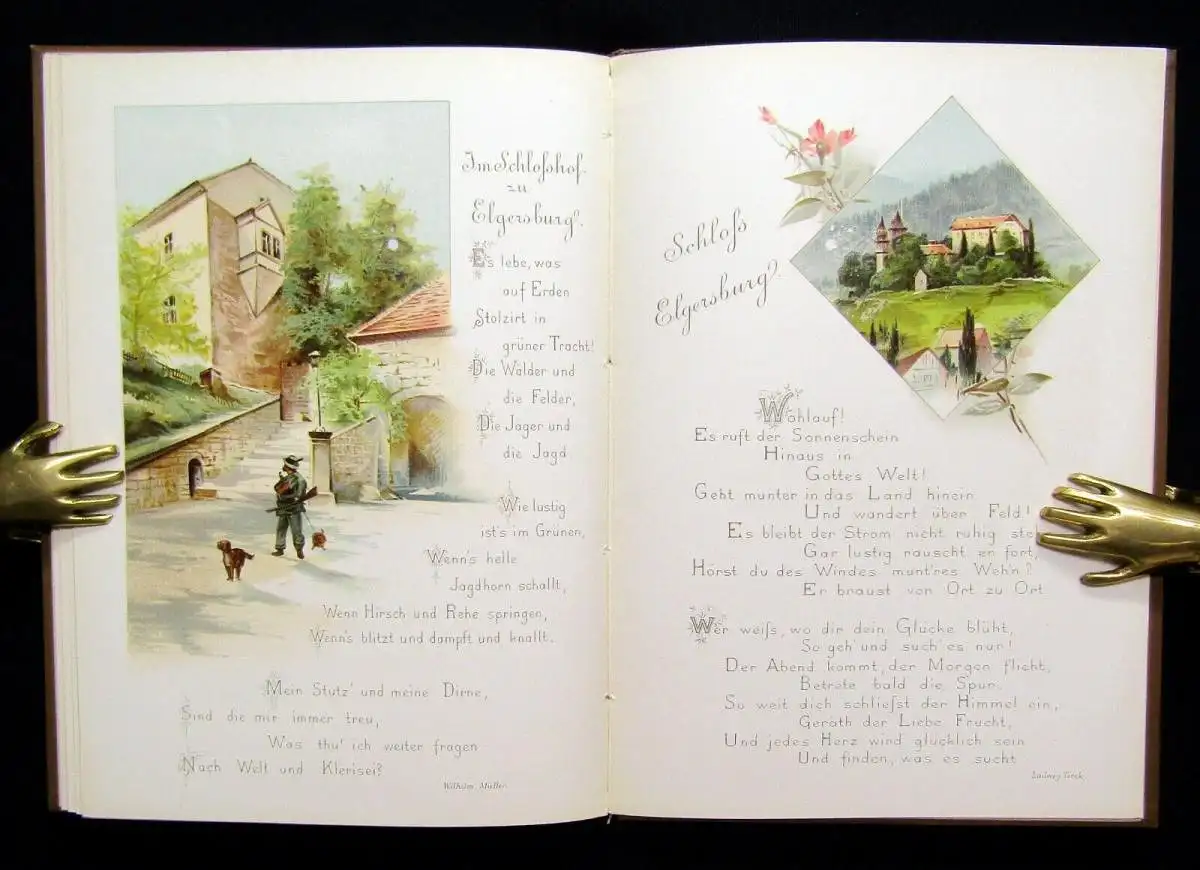 Im Schloſshof
zu
Elgersburg.
Es lebe, was
auf Erden
Stolzirt in
grüner Tracht!
Die Wälder und
die Felder,
Die Jäger und
die Jagd
Wie lustig
ist's im Grünen,
Wenn's helle
Jagdhorn schallt,
Wenn Hirsch und Rehe springen,
Wenn's blitzt und dampft und knallt.
Mein Stutz' und meine Dirne,
Sind die mir immer treu,
Was thu' ich weiter fragen
Nach Welt und Klerisei?
Wilhelm Müller.
Schloſs
Elgersburg.
Wohlauf!
Es ruft der Sonnenschein
Hinaus in
Gottes Welt!
Geht munter in das Land hinein
Und wandert über Feld!
Es bleibt der Strom nicht ruhig ste
Gar lustig rauscht er fort,
Hörst du des Windes munt'res Weh'n?
Er braust von Ort zu Ort
Wer weiſs, wo dir dein Glücke blüht,
So geh' und such' es nur!
Der Abend kommt, der Morgen flieht,
Betrete bald die Spur.
So weit dich schlieſst der Himmel ein,
Geräth der Liebe Frucht,
Und jedes Herz wird glücklich sein
Und finden, was es sucht
Ludwig Tieck